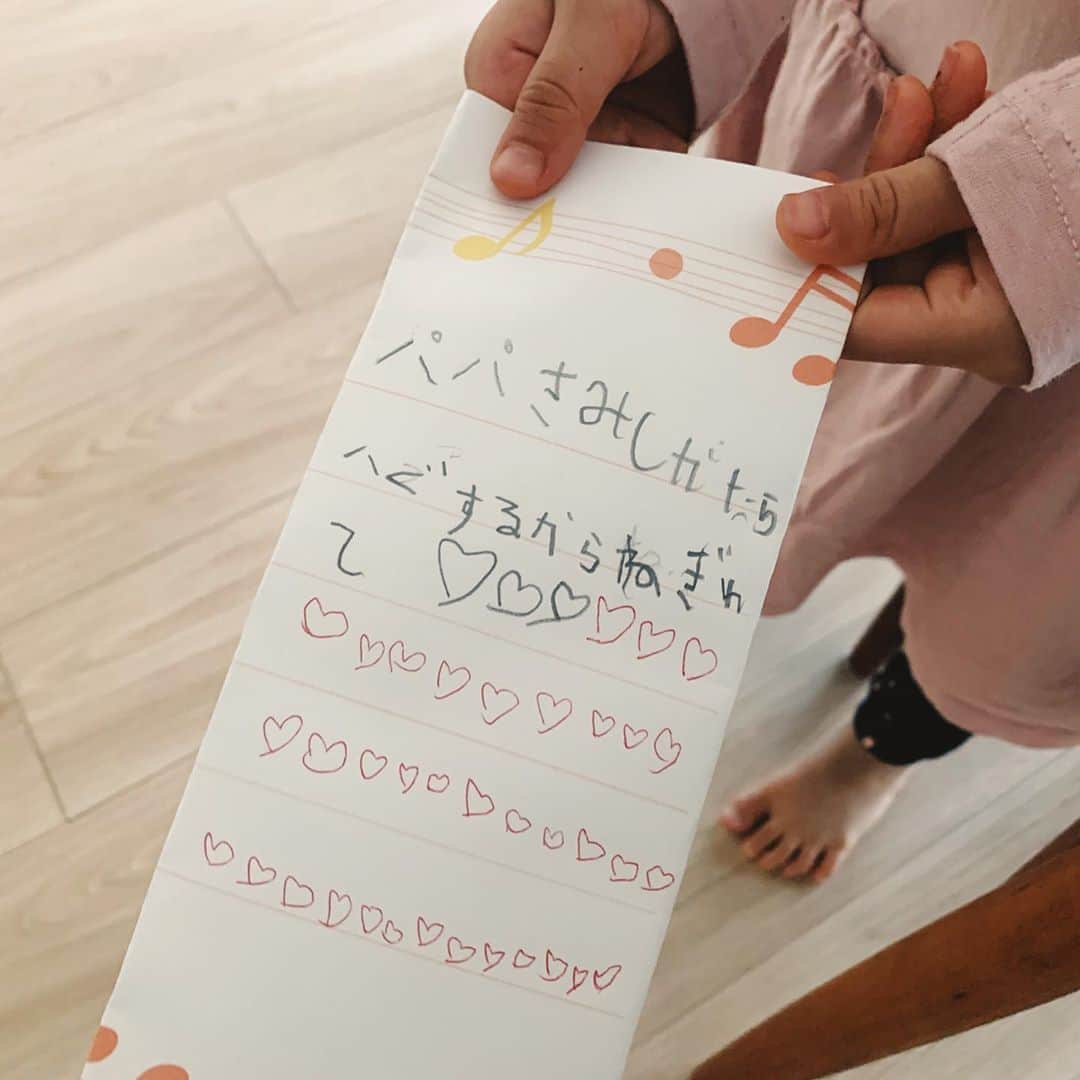 パパさみしがたら
ハぐするからねぎゅ
て